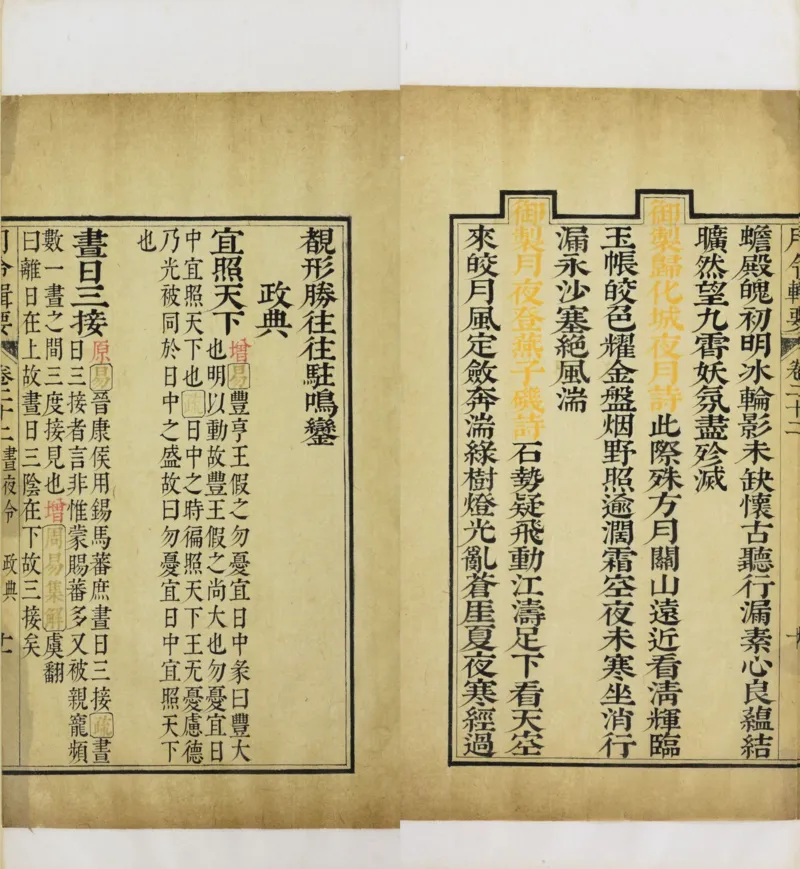 月令輯要 卷二十二
蟾殿魄初明冰輪影未缺懷古聽行漏素心良蘊結
曠然望九霄妖氛盡殄滅
御製歸化城夜月詩此際殊方月關山遠近看淸輝臨
玉帳皎色耀金盤烟野照逾濶霜空夜未寒坐消行
漏永沙塞絕風湍
御製月夜登燕子磯詩石勢疑飛動江濤足下看天空
來皎月風定斂奔湍綠樹燈光亂蒼崖夏夜寒經過
覩形勝往往駐鳴鑾
政典
宜照天下增易豐亨王假之勿憂宜日中彖曰豐大
也明以動故豐王假之尚大也勿憂宜日
中宜照天下也疏日中之時徧照天下王无憂慮德
乃光被同於日中之盛故曰勿憂宜日中宜照天下
也
晝日三接原易晉康侯用錫馬蕃庶晝日三接疏晝
日三接者言非惟蒙賜蕃多又被親寵頻
數一晝之間三度接見也增周易集解虞翻
曰離日在上故晝日三陰在下故三接矣
月令輯要 卷二十二 晝夜令 政典 十一